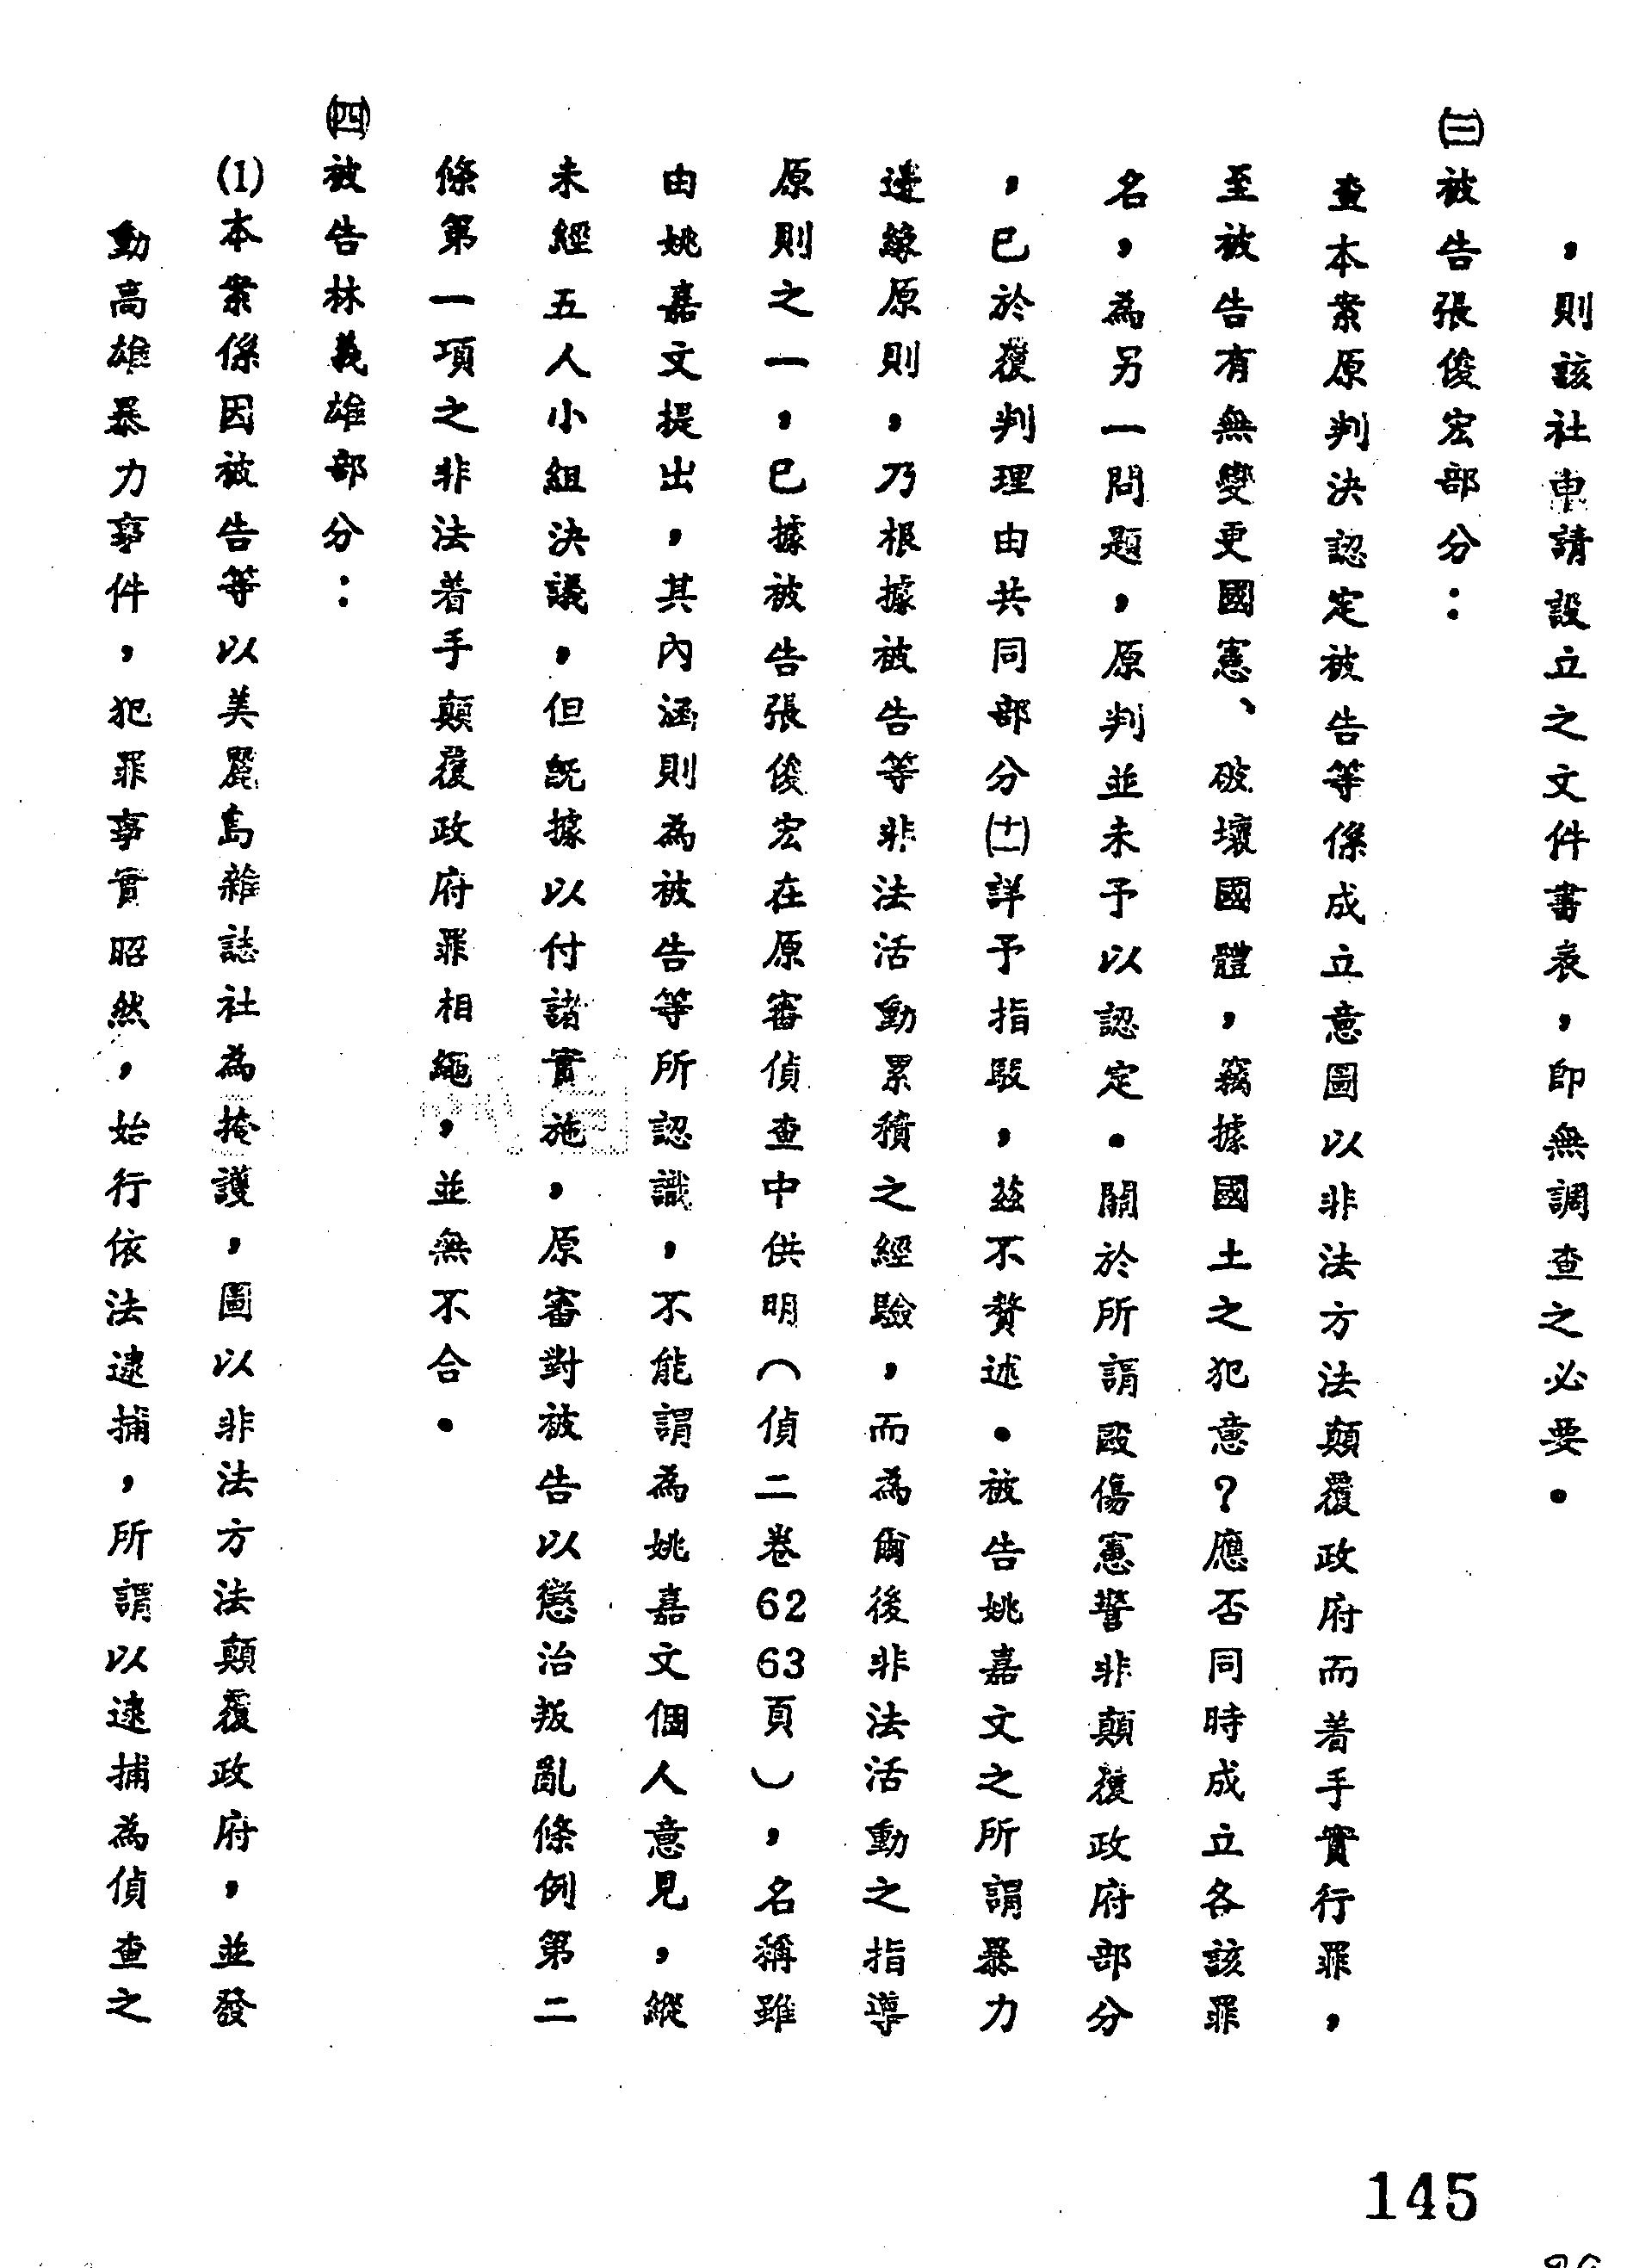 ，則該社申請設立之文件書表，即無調查之必要．
㈢被告張俊宏部分：
查本案原判決認定被告等係成立意圖以非法方法顛覆政府而着手實行罪，
至被告有無變更國憲、破壞國體，竊據國土之犯意？應否同時成立各該罪
名，為另一問題，原判並未予以認定．關於所謂毆傷憲警非顛覆政府部分
，已於覆判理由共同部分㈩詳予指駁，茲不贅述．被告姚嘉文之所謂暴力
邊緣原則，乃根據被告等非法活動累積之經驗，而為爾後非法活動之指導
原則之一，已據被告張俊宏在原審偵查中供明（偵二卷62 63頁），名稱雖
由姚嘉文提出，其內涵則為被告等所認識，不能謂為姚嘉文個人意見，縱
未經五人小組決議，但既據以付諸實施，原審對被告以懲治叛亂條例第二
條第一項之非法着手顛覆政府罪相繩，並無不合．
㈣被告林義雄部分：
(1)本案係因被告等以美麗島雜誌社為掩護，圖以非法方法顛覆政府，並發
動高雄暴力事件，犯罪事實昭然，始行依法逮捕，所謂以逮捕為偵查之
145